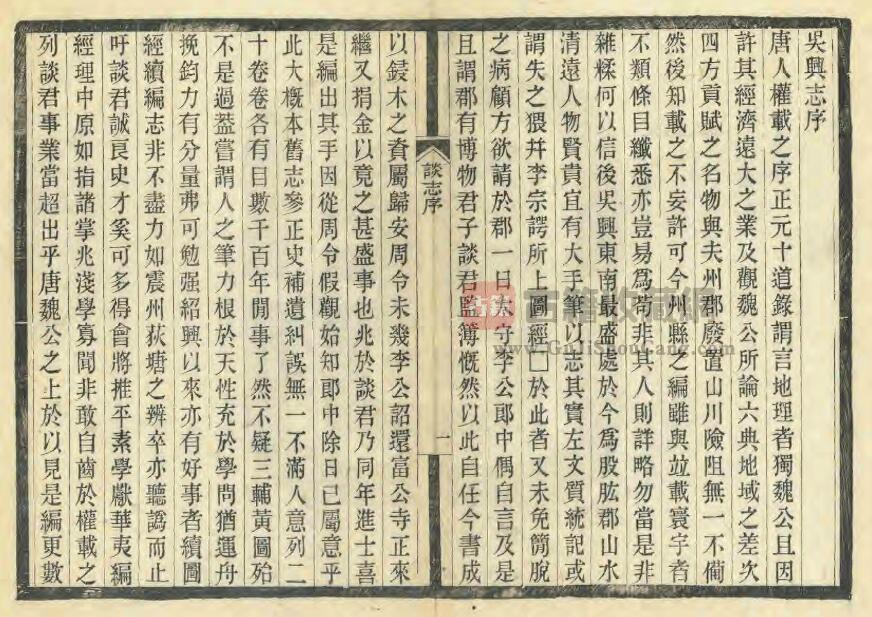 吳興志序
唐人權載之序正元十道錄謂言地理者獨魏公且因
許其經濟遠大之業及觀魏公所論六典地域之差次
四方貢賦之名物與夫州郡廢置山川險阻無一不僃
然後知載之不妄許可今州縣之編雖與竝載寰宇者
不類條目纖悉亦豈易爲苟非其人則詳略勿當是非
雜糅何以信後吳興東南最盛處於今爲股肱郡山水
清遠人物賢貴宜有大手筆以志其實左文質統記或
謂失之猥幷李宗諤所上圖經□於此者又未免簡脫
之病顧方欲請於郡一日太守李公郞中偶自言及是
且謂郡有博物君子談君監簿慨然以此自任今書成
談志序
一
以鋟木之資屬歸安周令未幾李公詔還富公寺正來
繼又捐金以竟之甚盛事也兆於談君乃同年進士喜
是編出其手因從周令假觀始知郞中除日已屬意乎
此大槪本舊志參正史補遺糾誤無一不滿人意列二
十卷卷各有目數千百年閒事了然不疑三輔黃圖殆
不是過蓋嘗謂人之筆力根於天性充於學問猶運舟
挽鈞力有分量弗可勉强紹興以來亦有好事者續圖
經續編志非不盡力如震州荻塘之辨卒亦聽譌而止
吁談君誠良史才奚可多得會將推平素學獻華夷編
經理中原如指諸掌兆淺學寡聞非敢自齒於權載之
列談君事業當超出乎唐魏公之上於以見是編更數
古籍收藏網
www.GujiShouCang.com